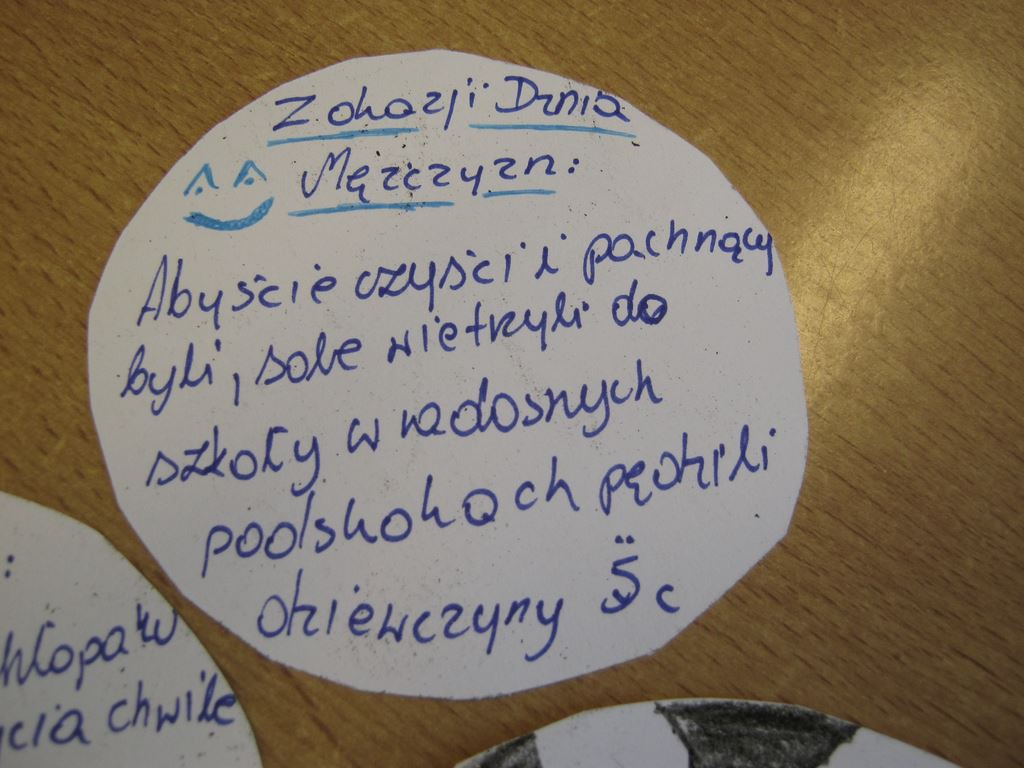 Z okazji Dnia
Mężczyzn:
Abyście czyści i pachnący
byli, sobe wietrzyli do
szkoły w radosnych
podskokach pędzili
dziewczyny 5c
:
chłopaków
życia chwile